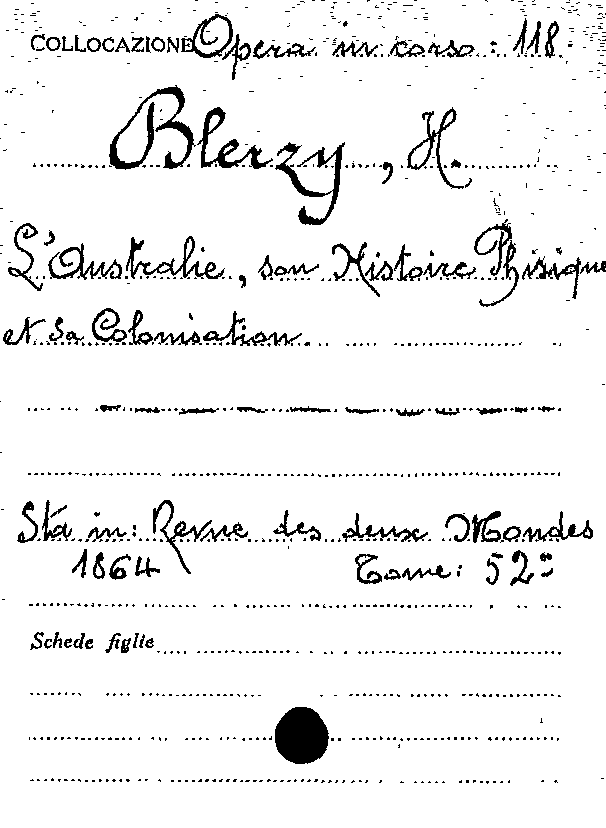 COLLOCAZIONE Opera in corso: 118.
Blerzy, H.
L'Australie, son Histoire Phisique
et sa Colonisation.
Sta in: Revue des deux Mondes
1864 Tome: 52º
Schede figlie